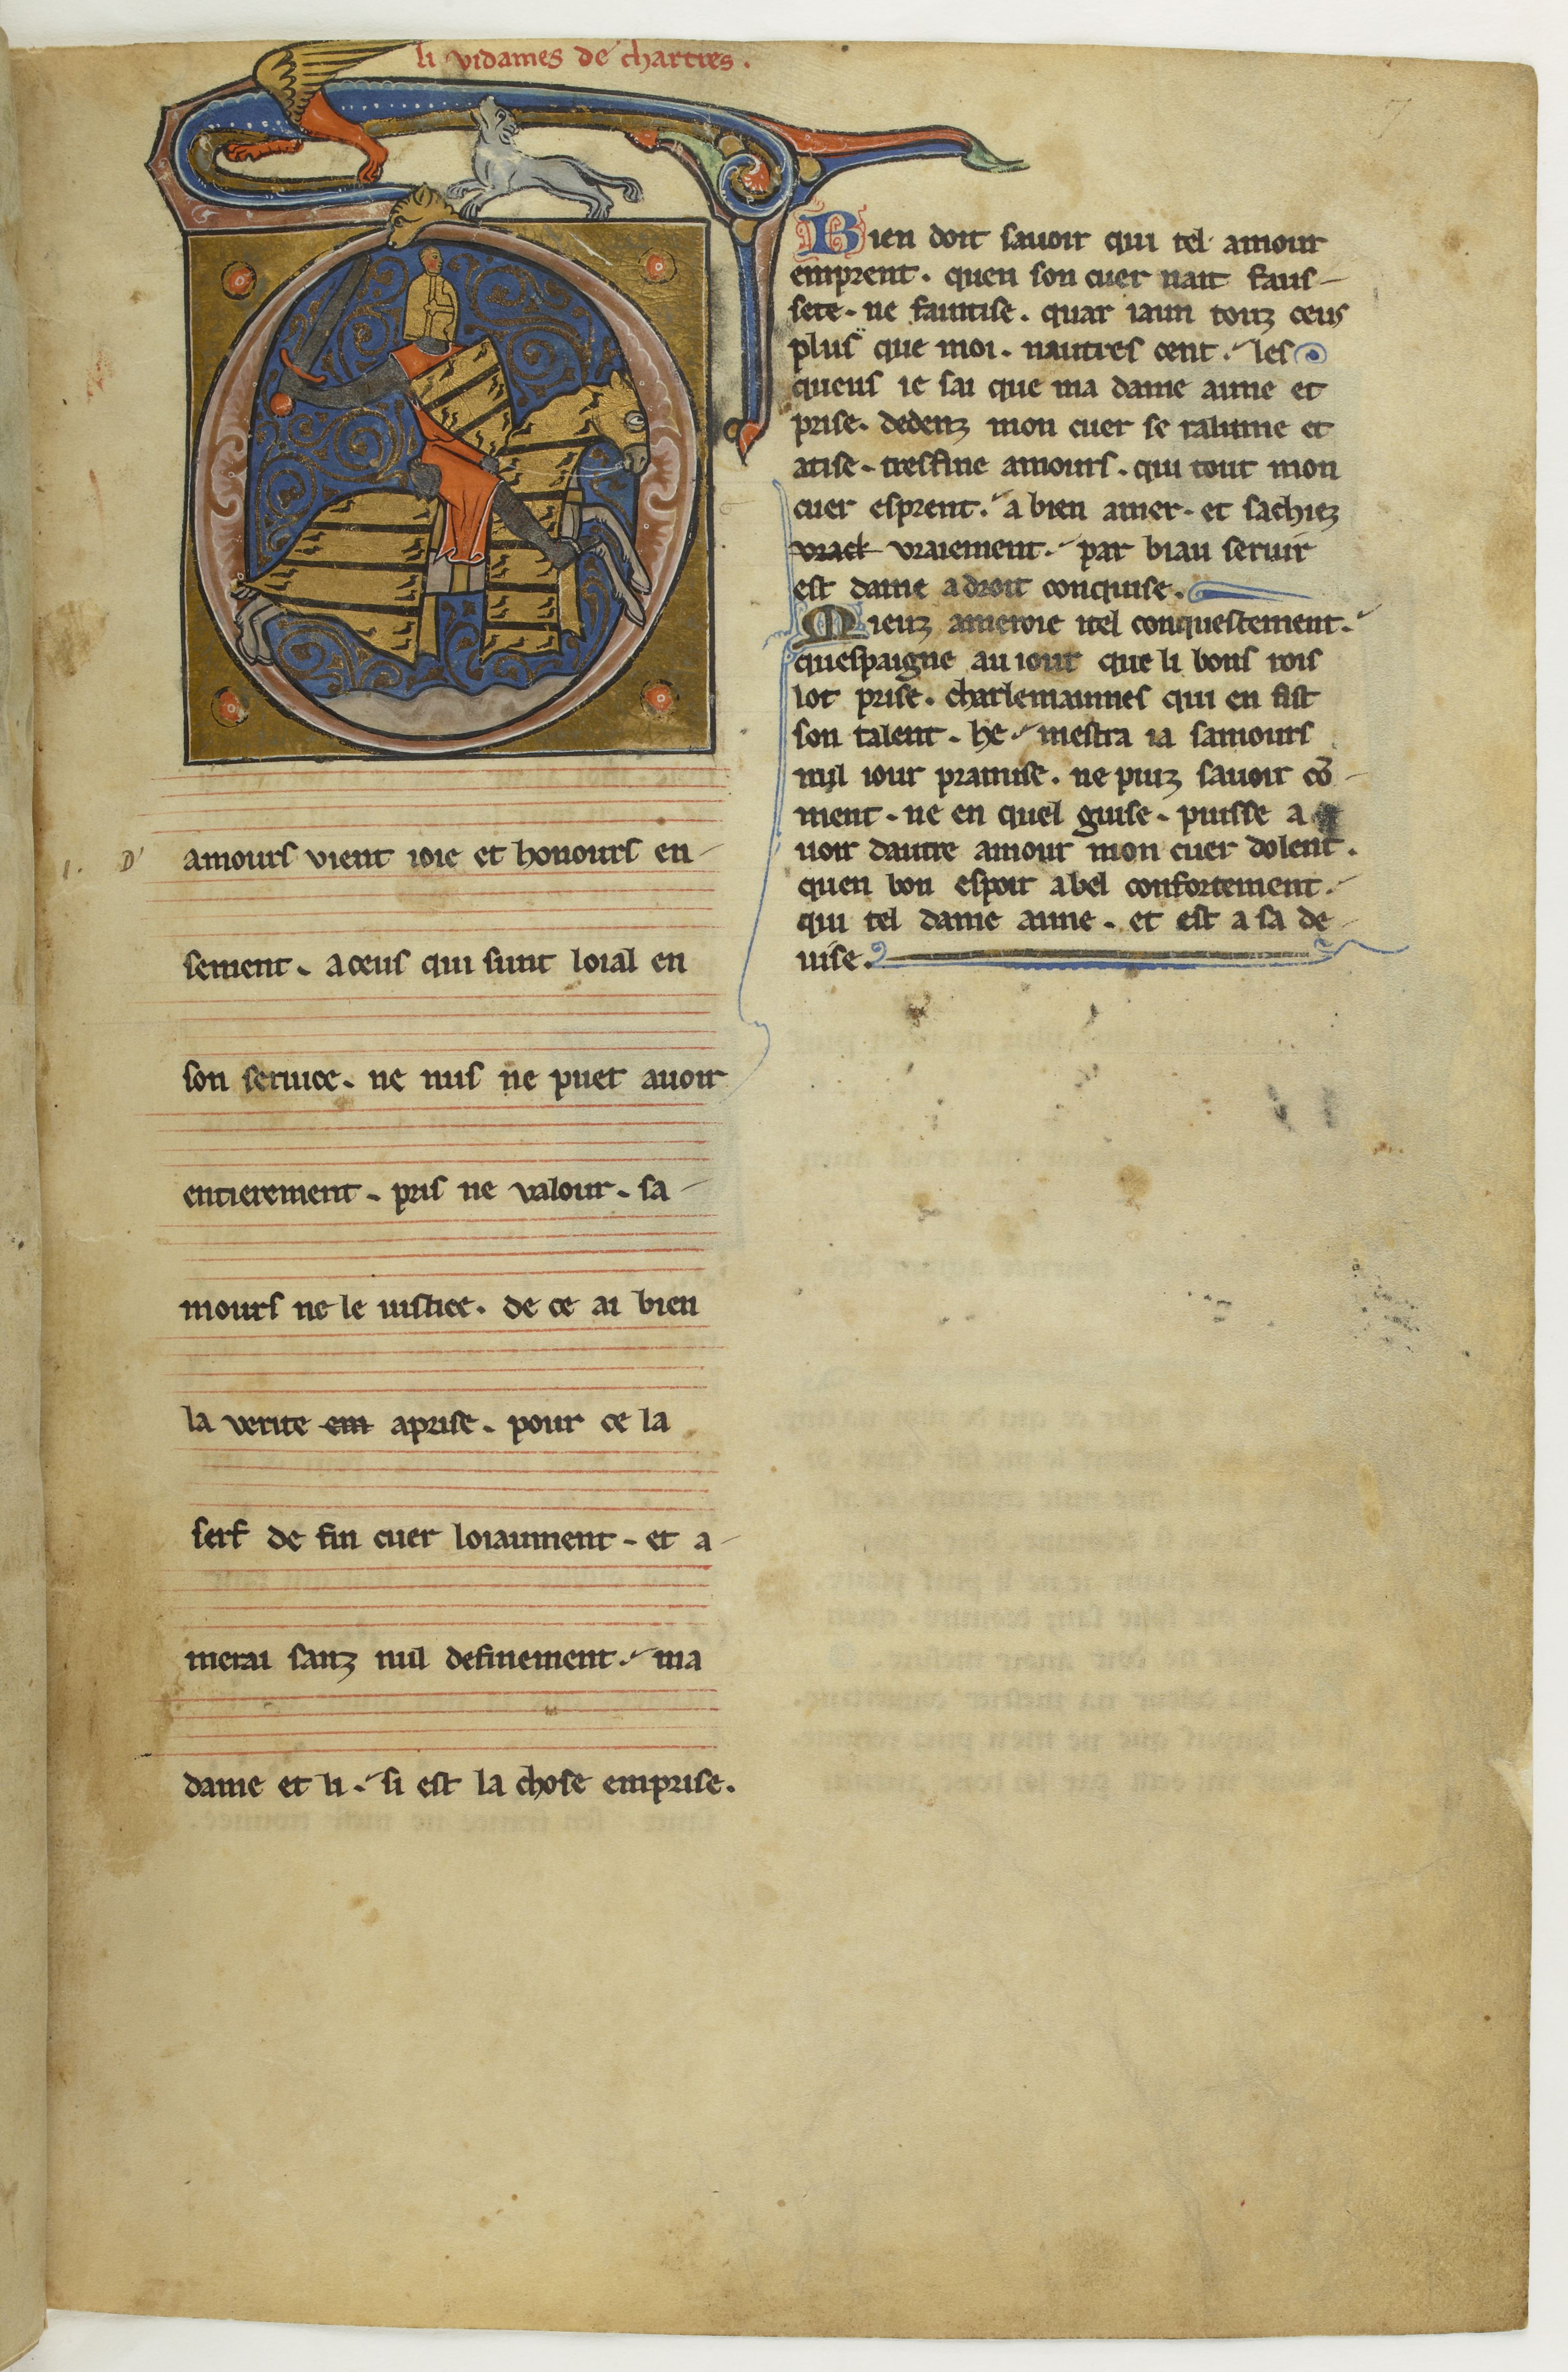 li vidames de chartres.
7
D'
amours vient ioie et honours en
sement. a ceus qui sunt loial en
son seruice. ne nus ne puet auoir
entierement. pris ne valour. sa
mours ne le iustice. de ce ai bien
la verite em aprise. pour ce la
serf de fin cuer loiaument. et a
merai sanz nul definement. ma
dame et li. si est la chose emprise.
Bien doit sauoir qui tel amour
emprent. quen son cuer nait faus
sete. ne faintise. quar iaim touz ceus
plus que moi. nautres cent. les
queus ie sai que ma dame aime et
prise. dedenz mon cuer se ralume et
atise. tresfine amours. qui tout mon
cuer esprent. a bien amer. et sachiez
vraiement. par biau seruir
est dame a droit conquise.
Mieuz ameroie itel conquestement.
quespaigne au iour que li bons rois
lot prise. charlemainnes qui en fist
son talent. he mestra ia samours
nul iour pramise. ne puiz sauoir cõ
ment. ne en quel guise. puisse a
uoir dautre amour mon cuer dolent.
quen bon espoir a bel confortement.
qui tel dame aime. et est a sa de
uise.